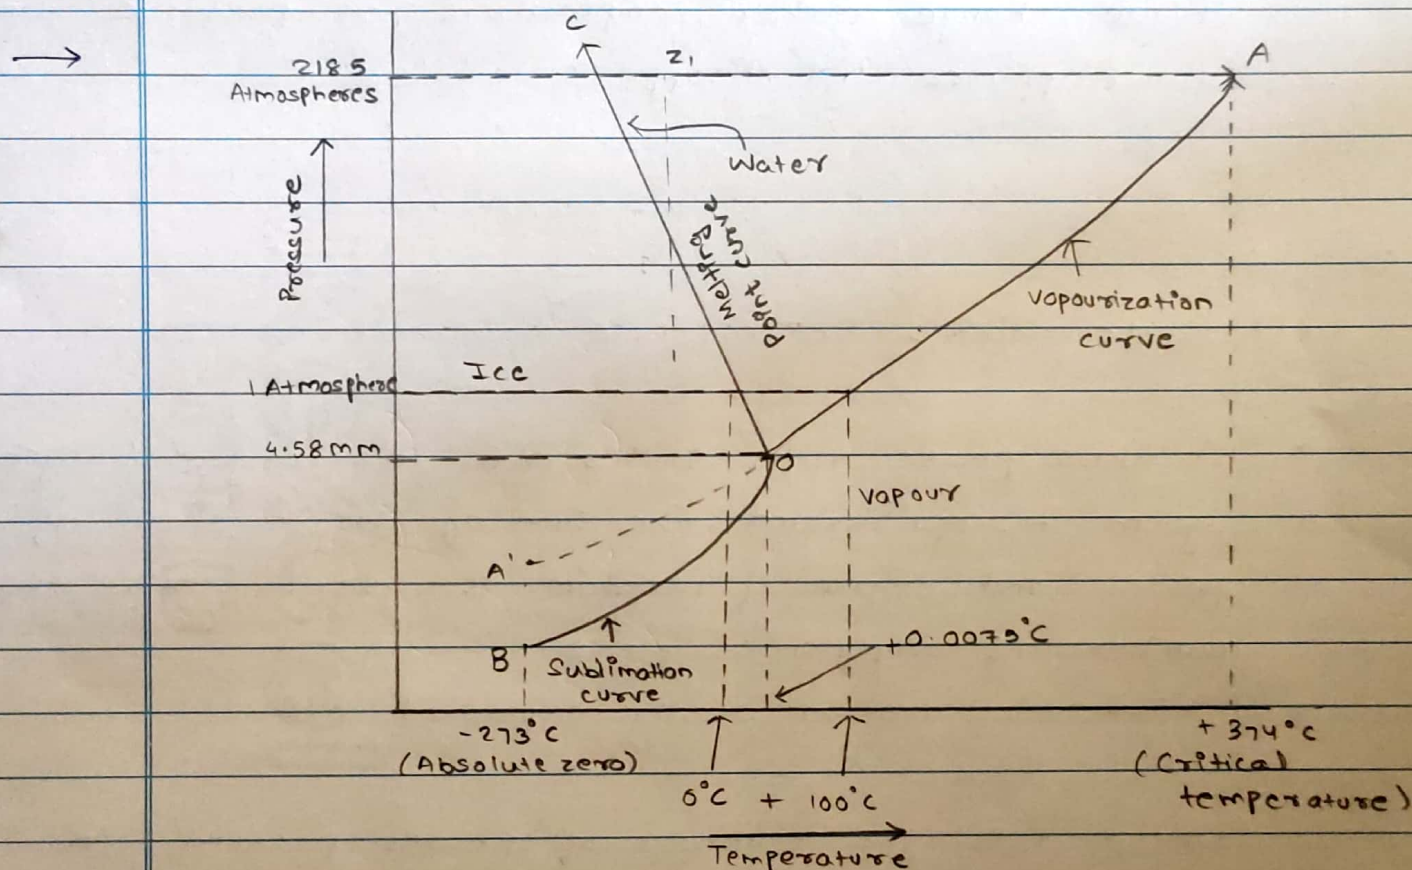 C
Z₁
A
218.5
Atmospheres
Water
Pressure
Melting
point curve
Vapourization
curve
Ice
1 Atmosphere
4.58mm
O
Vapour
A'
B
Sublimation
curve
+0.0075°C
-273°C
(Absolute zero)
0°C + 100°C
+ 374°C
(Critical
temperature)
Temperature